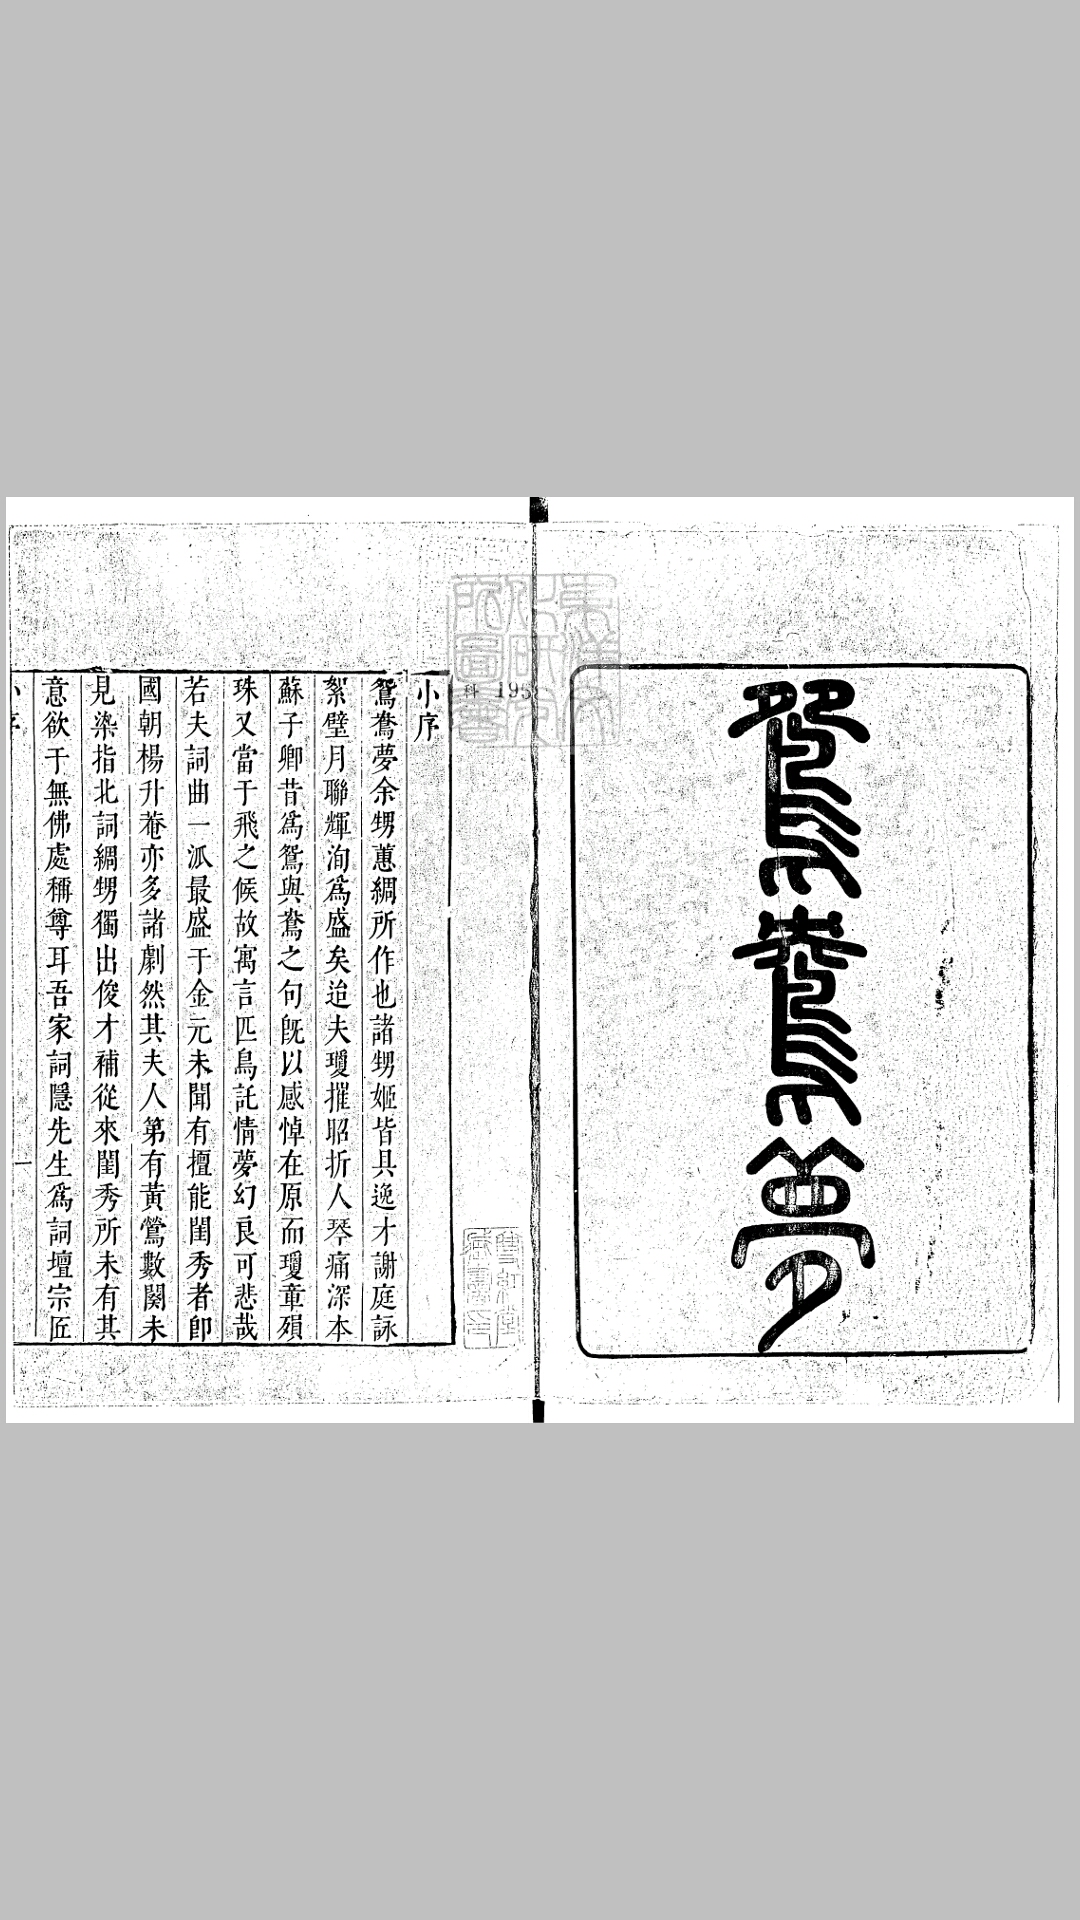 鴛鴦夢
小序
鴛鴦夢余甥蕙綢所作也諸甥姬皆具逸才謝庭詠
絮璧月聯輝洵爲盛矣迨夫瓊摧昭折人琴痛深本
蘇子卿昔爲鴛與鴦之句旣以感悼在原而瓊童殞
珠又當于飛之候故寓言匹鳥託情夢幻良可悲哉
若夫詞曲一派最盛于金元未聞有擅能閨秀者卽
國朝楊升菴亦多諸劇然其夫人第有黃鶯數闋未
見染指北詞綢甥獨出俊才補從來閨秀所未有其
意欲于無佛處稱尊耳吾家詞隱先生爲詞壇宗匠
小序
一
科 195